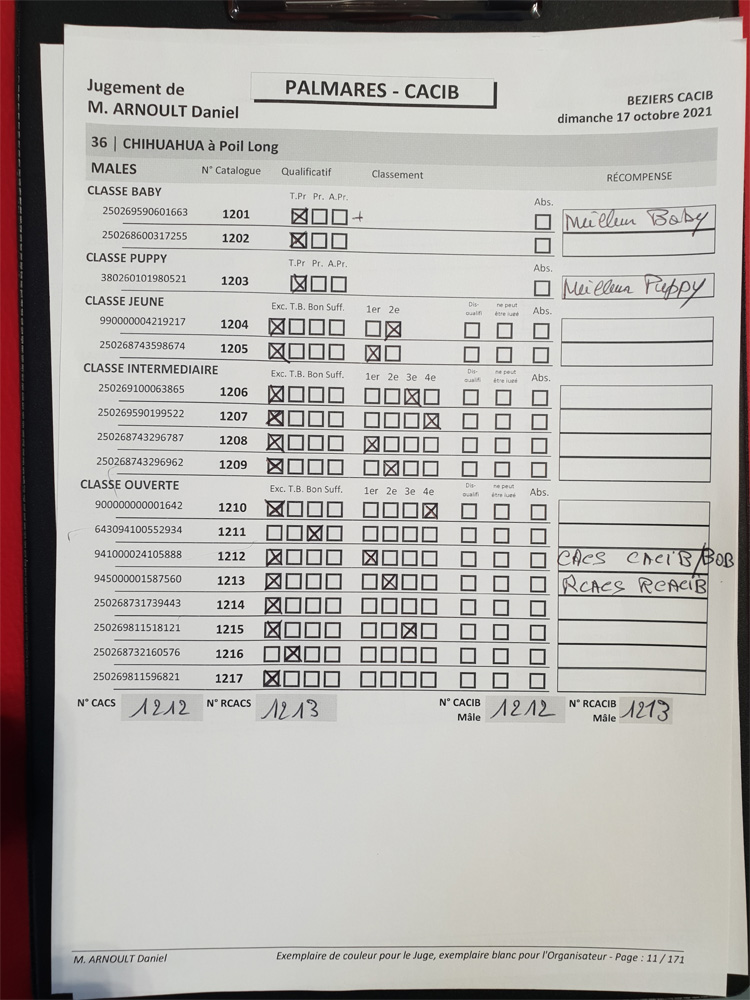 Jugement de
M. ARNOULT Daniel
PALMARES - CACIB
BEZIERS CACIB
dimanche 17 octobre 2021
36 | CHIHUAHUA à Poil Long
MALES N° Catalogue Qualificatif Classement RÉCOMPENSE
CLASSE BABY
T.Pr Pr. A.Pr. Abs.
250269590601663 1201 + Meilleur Baby
250268600317255 1202
CLASSE PUPPY
T.Pr Pr. A.Pr. Abs.
380260101980521 1203 Meilleur Puppy
CLASSE JEUNE
Exc. T.B. Bon Suff. 1er 2e Dis- qualifi ne peut être jugé Abs.
990000004219217 1204
250268743598674 1205
CLASSE INTERMEDIAIRE
Exc. T.B. Bon Suff. 1er 2e 3e 4e Dis- qualifi ne peut être jugé Abs.
250269100063865 1206
250269590199522 1207
250268743296787 1208
250268743296962 1209
CLASSE OUVERTE
Exc. T.B. Bon Suff. 1er 2e 3e 4e Dis- qualifi ne peut être jugé Abs.
900000000001642 1210
643094100552934 1211
941000024105888 1212 CACS CACIB/BOB
945000001587560 1213 RCACS RCACIB
250268731739443 1214
250269811518121 1215
250268732160576 1216
250269811596821 1217
N° CACS 1212 N° RCACS 1213 N° CACIB Mâle 1212 N° RCACIB Mâle 1213
M. ARNOULT Daniel Exemplaire de couleur pour le Juge, exemplaire blanc pour l'Organisateur - Page : 11 / 171